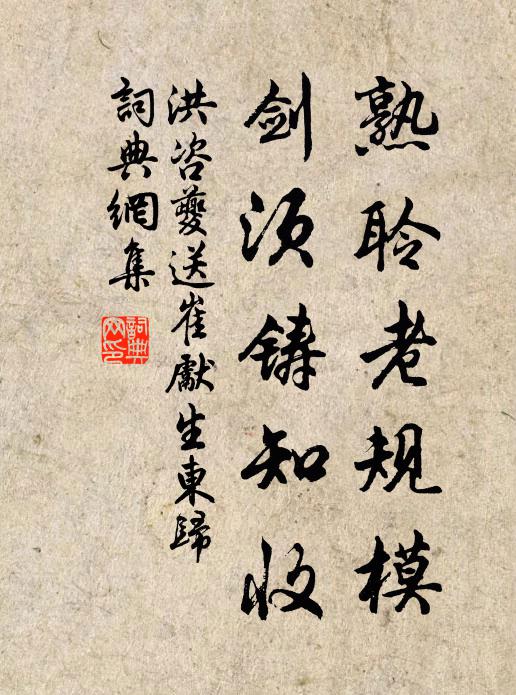 熟聆老規模
劍須鑄知收
洪咨夔送崔獻生東歸
詞典網集
詞典網印